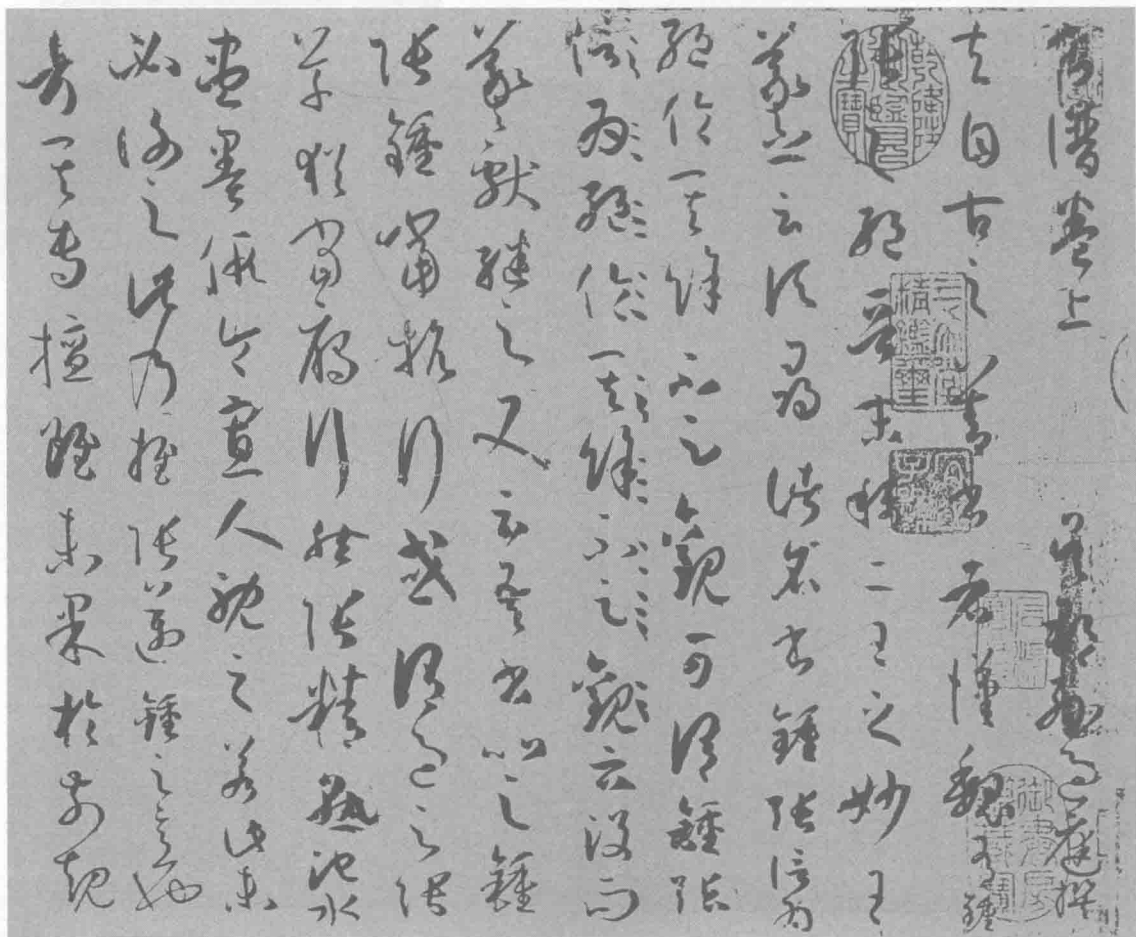 書譜卷上 吳郡孫過庭撰
夫自古之善書者漢魏有鍾
張之絕晉末稱二王之妙王
羲之云頃尋諸名書鍾張信為
絕倫其餘不足觀可謂鍾張
信為絕倫其餘不足觀云沒而
羲獻繼之又云吾書比之鍾
張鍾當抗行或謂過之張
草猶當鴈行然張精熟池水
盡墨假令寡人耽之若此未
必謝之此乃推張邁鍾之意也
考其專擅雖未果於前規
乾隆御覽之寶
三希堂精鑑璽
宜子孫